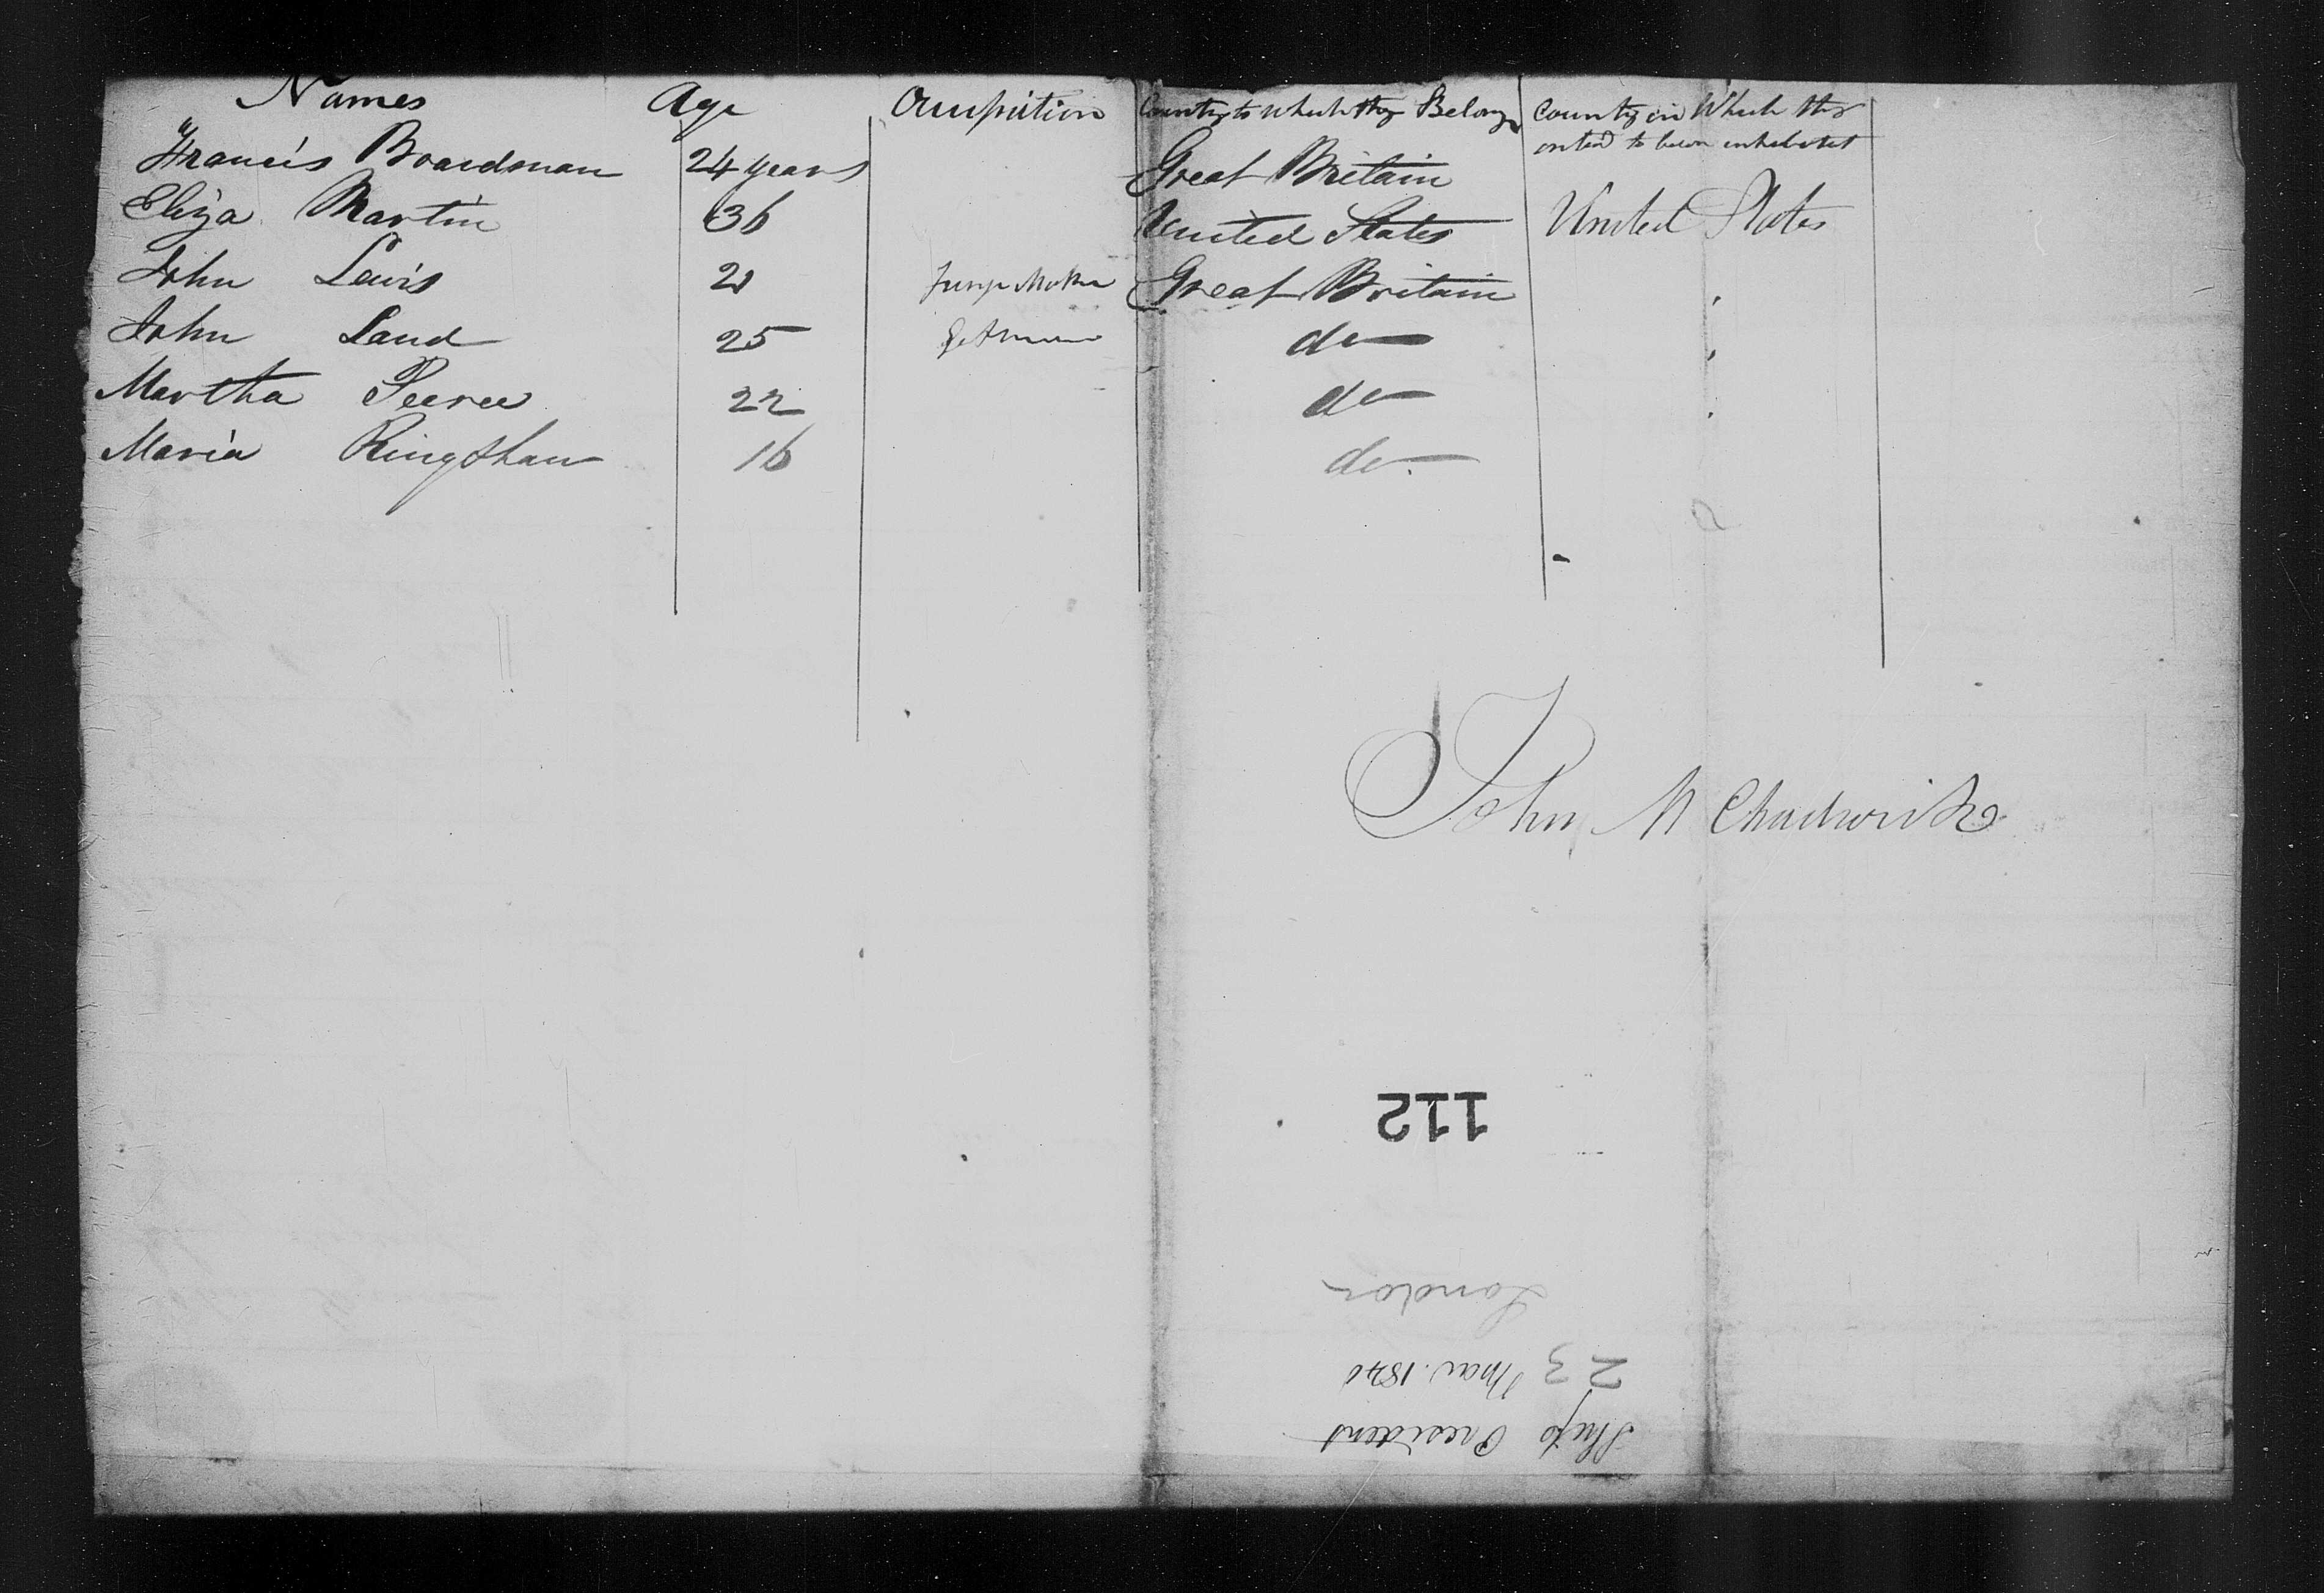 Names Age Occupation Country to which they Belong Country in Which they
intend to becom inhabitet
Francis Boardman 24 years Great Britain
Eliza Martin 36 United States United States
John Lewis 21 Great Britain
John Land 25 do
Martha Peerce 22 do
Maria Kingshaw 16 do
John M Chadwick
112
London
23 Mar. 1840
Ship President